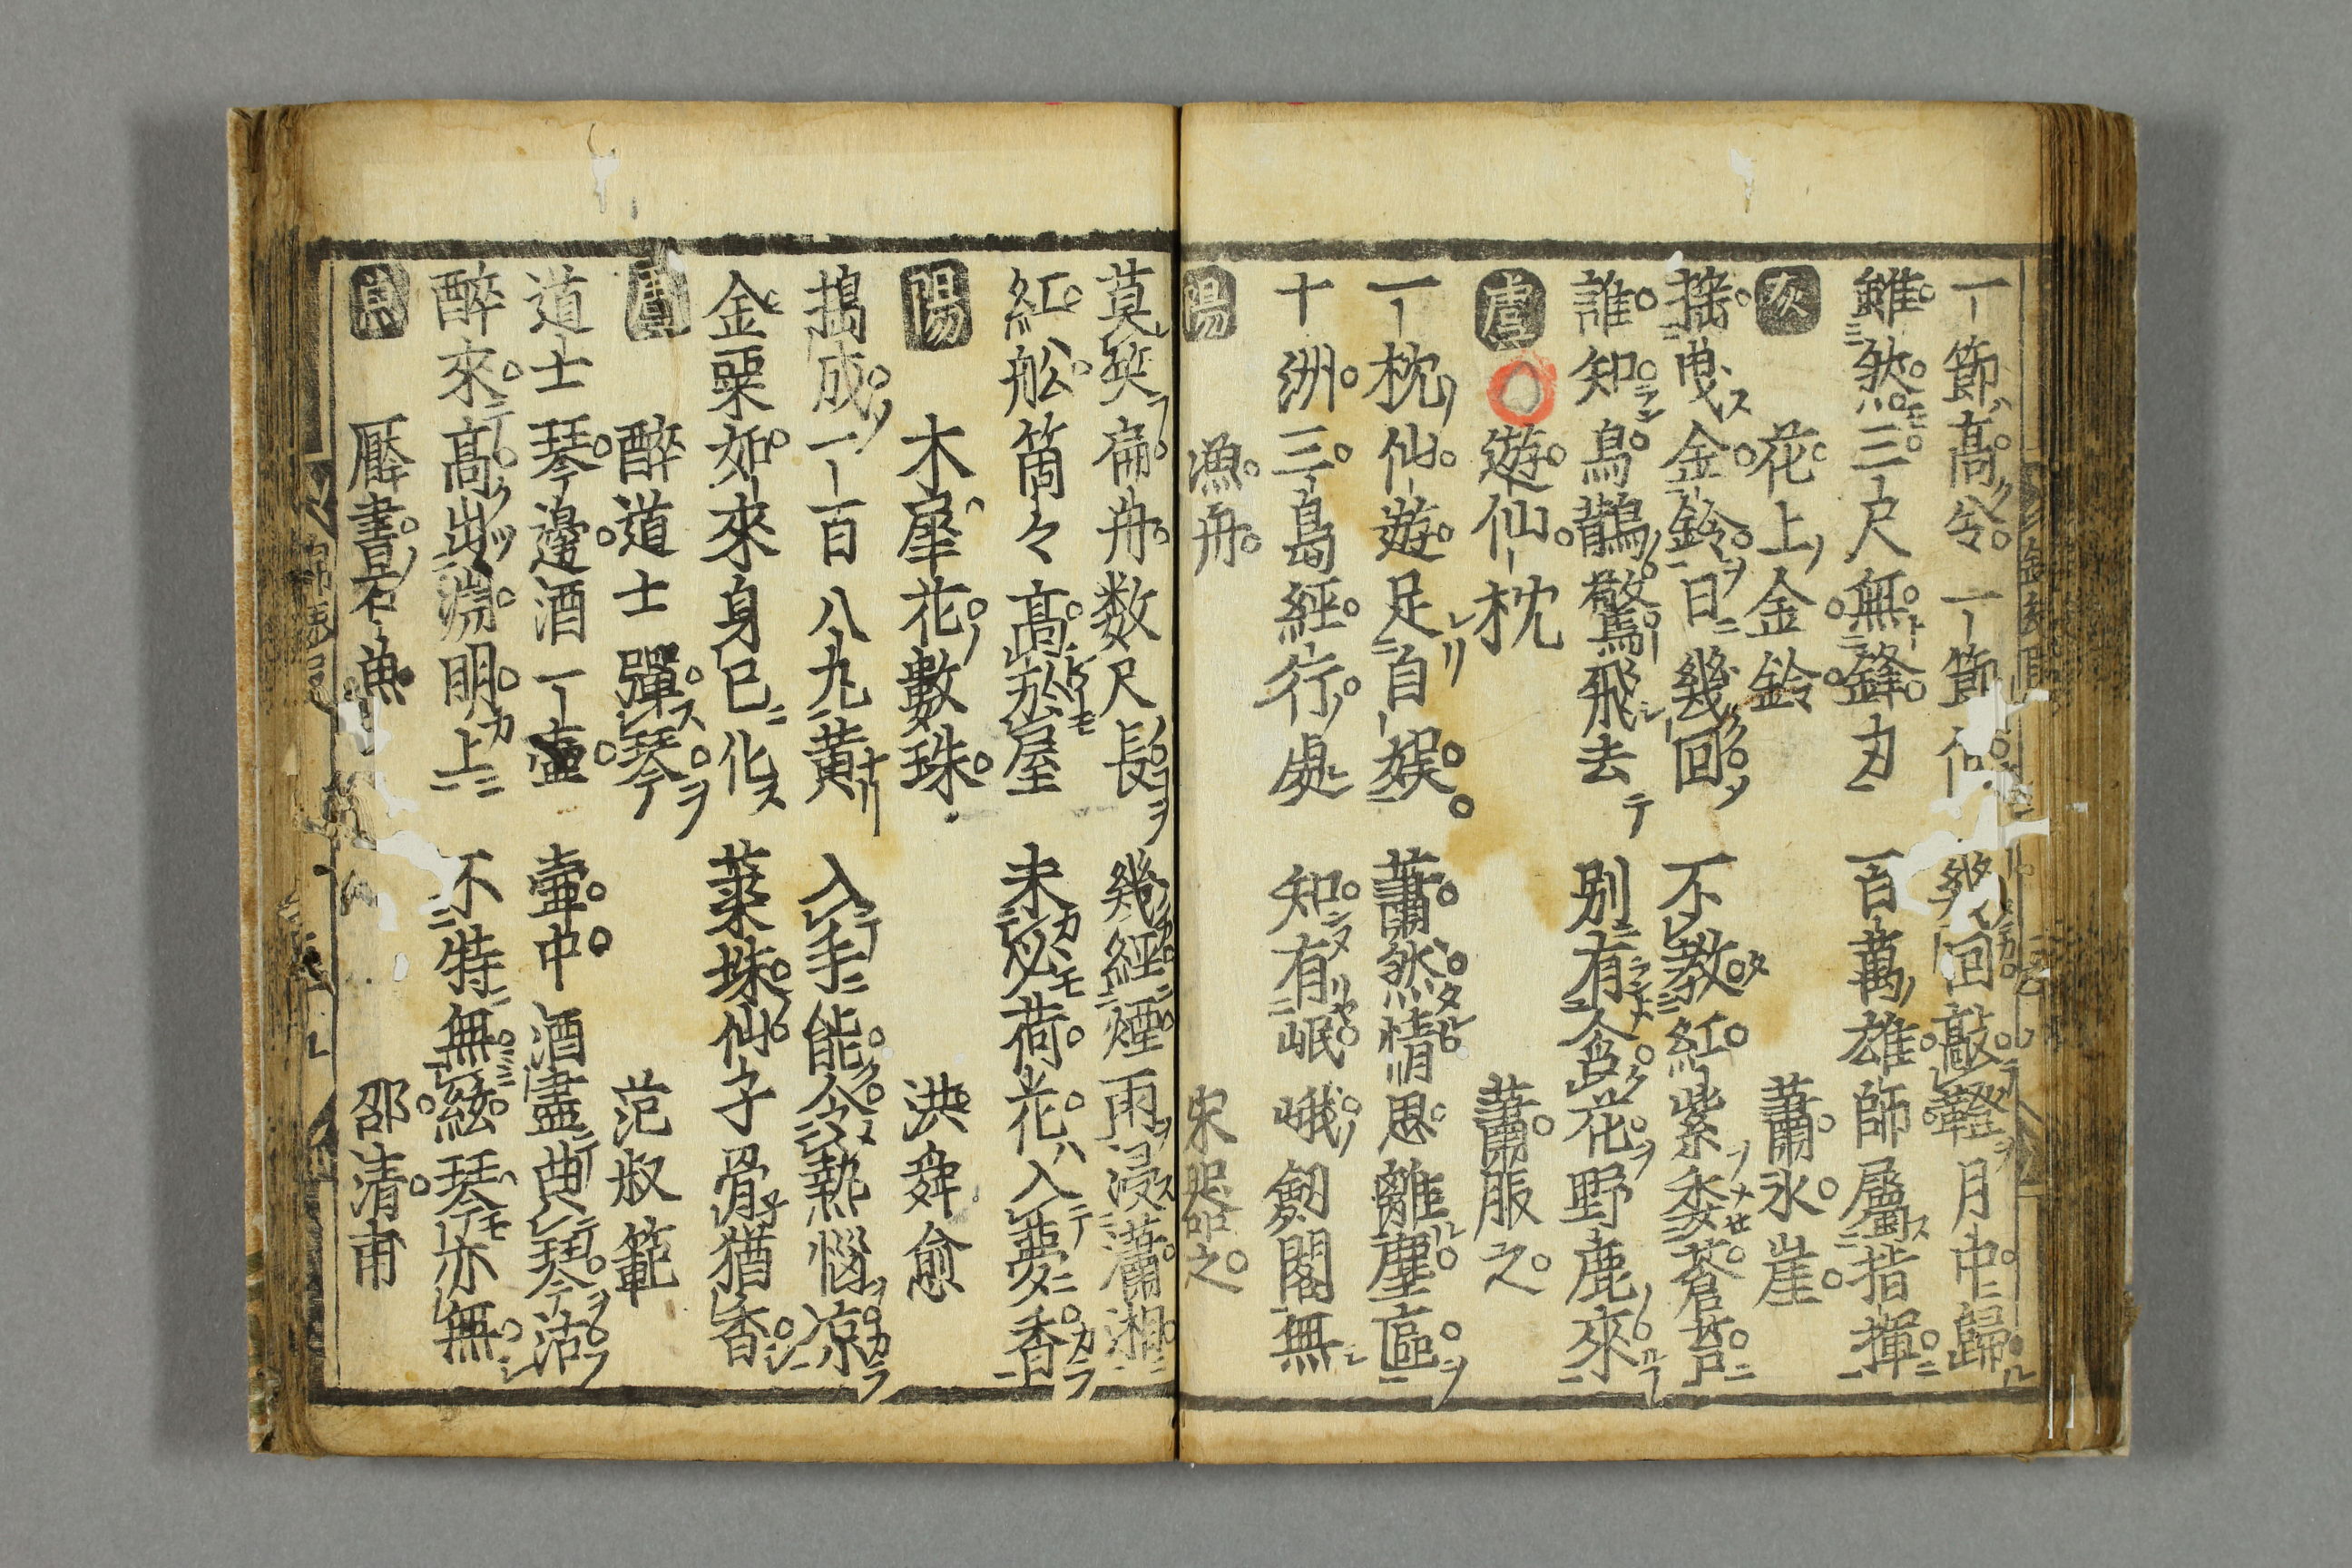 一節高兮一節 幾回敲鐙月中歸
雖然三尺無鋒刃 百萬雄師屬指揮
灰 花上金鈴 蕭氷崖
搖曳金鈴日幾回 不教紅紫委蒼苔
誰知鳥鵲驚飛去 別有含花野鹿來
虞 遊仙枕 蕭服之
一枕仙遊足自娯 蕭然情思離塵區
十洲三島經行處 知有岷峨劔閣無
陽 漁舟 宋之
莫笑扁舟数尺長 幾經煙雨浸瀟湘
紅舩箇々高於屋 未必荷花入夢香
陽 木犀花數珠 洪舜愈
搗成一百八九黄 入手能令熱惱凉
金粟如來身已化 蘂珠仙子骨猶香
虞 醉道士彈琴 范叔範
道士琴邊酒一壷 壷中酒盡典琴沽
醉來高出淵明上 不特無絃琴亦無
壓書石魚 邵清甫